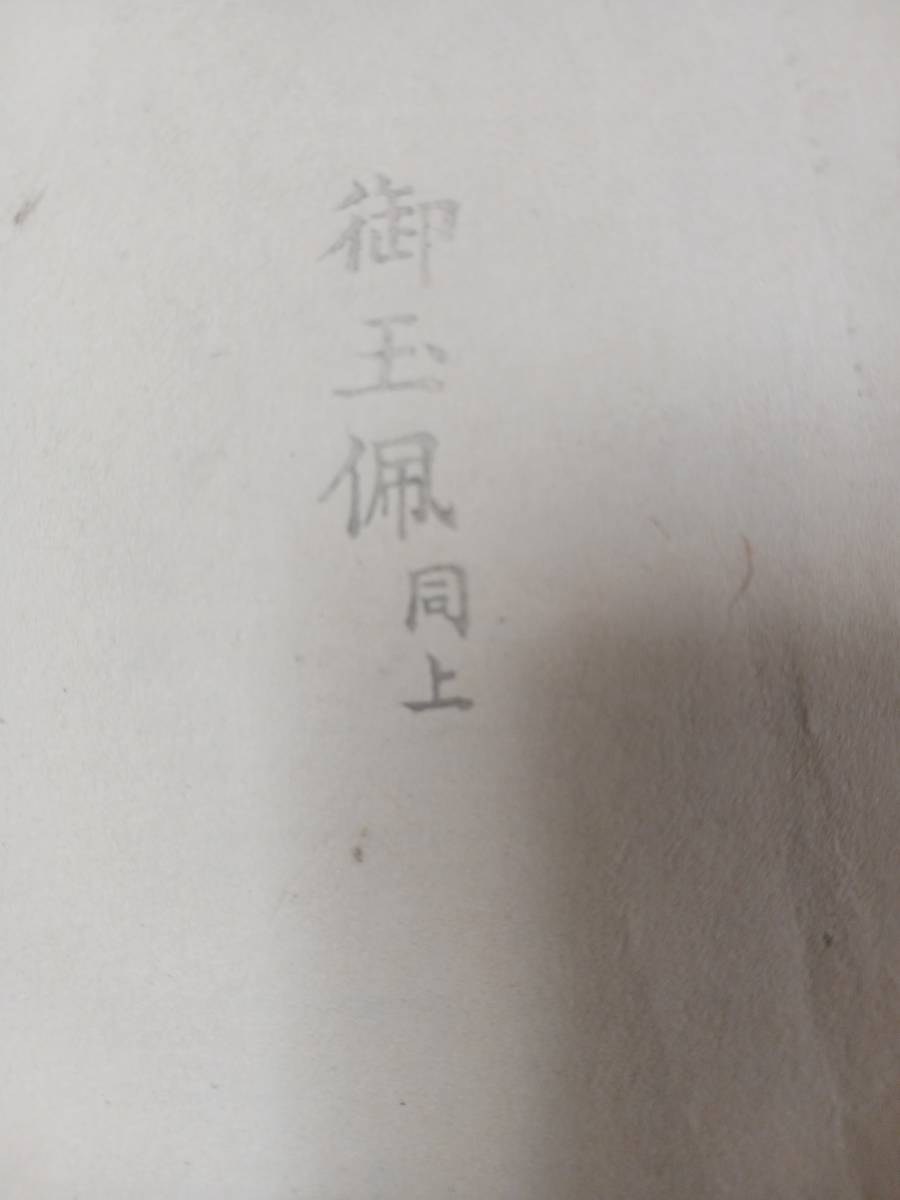 御玉佩同上